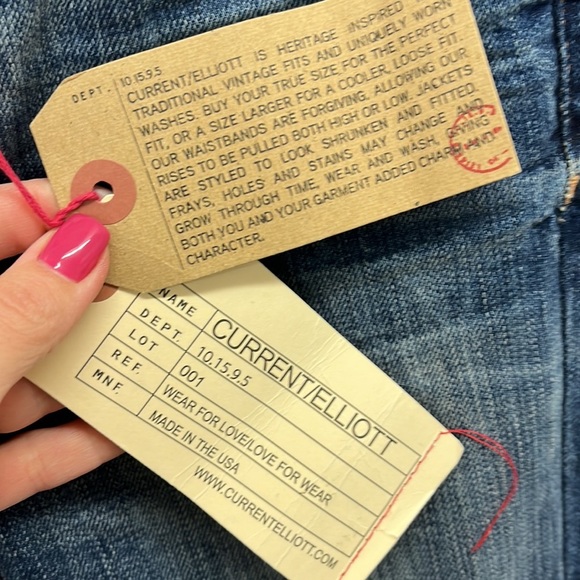 DEPT. 10.15.9.5
CURRENT/ELLIOTT IS HERITAGE INSPIRED
TRADITIONAL VINTAGE FITS AND UNIQUELY WORN
WASHES. BUY YOUR TRUE SIZE FOR THE PERFECT
FIT, OR A SIZE LARGER FOR A COOLER, LOOSE FIT.
OUR WAISTBANDS ARE FORGIVING, ALLOWING OUR
RISES TO BE PULLED BOTH HIGH OR LOW. JACKETS
ARE STYLED TO LOOK SHRUNKEN AND FITTED.
FRAYS, HOLES AND STAINS MAY CHANGE AND
GROW THROUGH TIME, WEAR AND WASH, GIVING
BOTH YOU AND YOUR GARMENT ADDED CHARM AND
CHARACTER.
NAME CURRENT/ELLIOTT
DEPT. 10.15.9.5
LOT 001
REF. WEAR FOR LOVE/LOVE FOR WEAR
MNF. MADE IN THE USA
WWW.CURRENTELLIOTT.COM